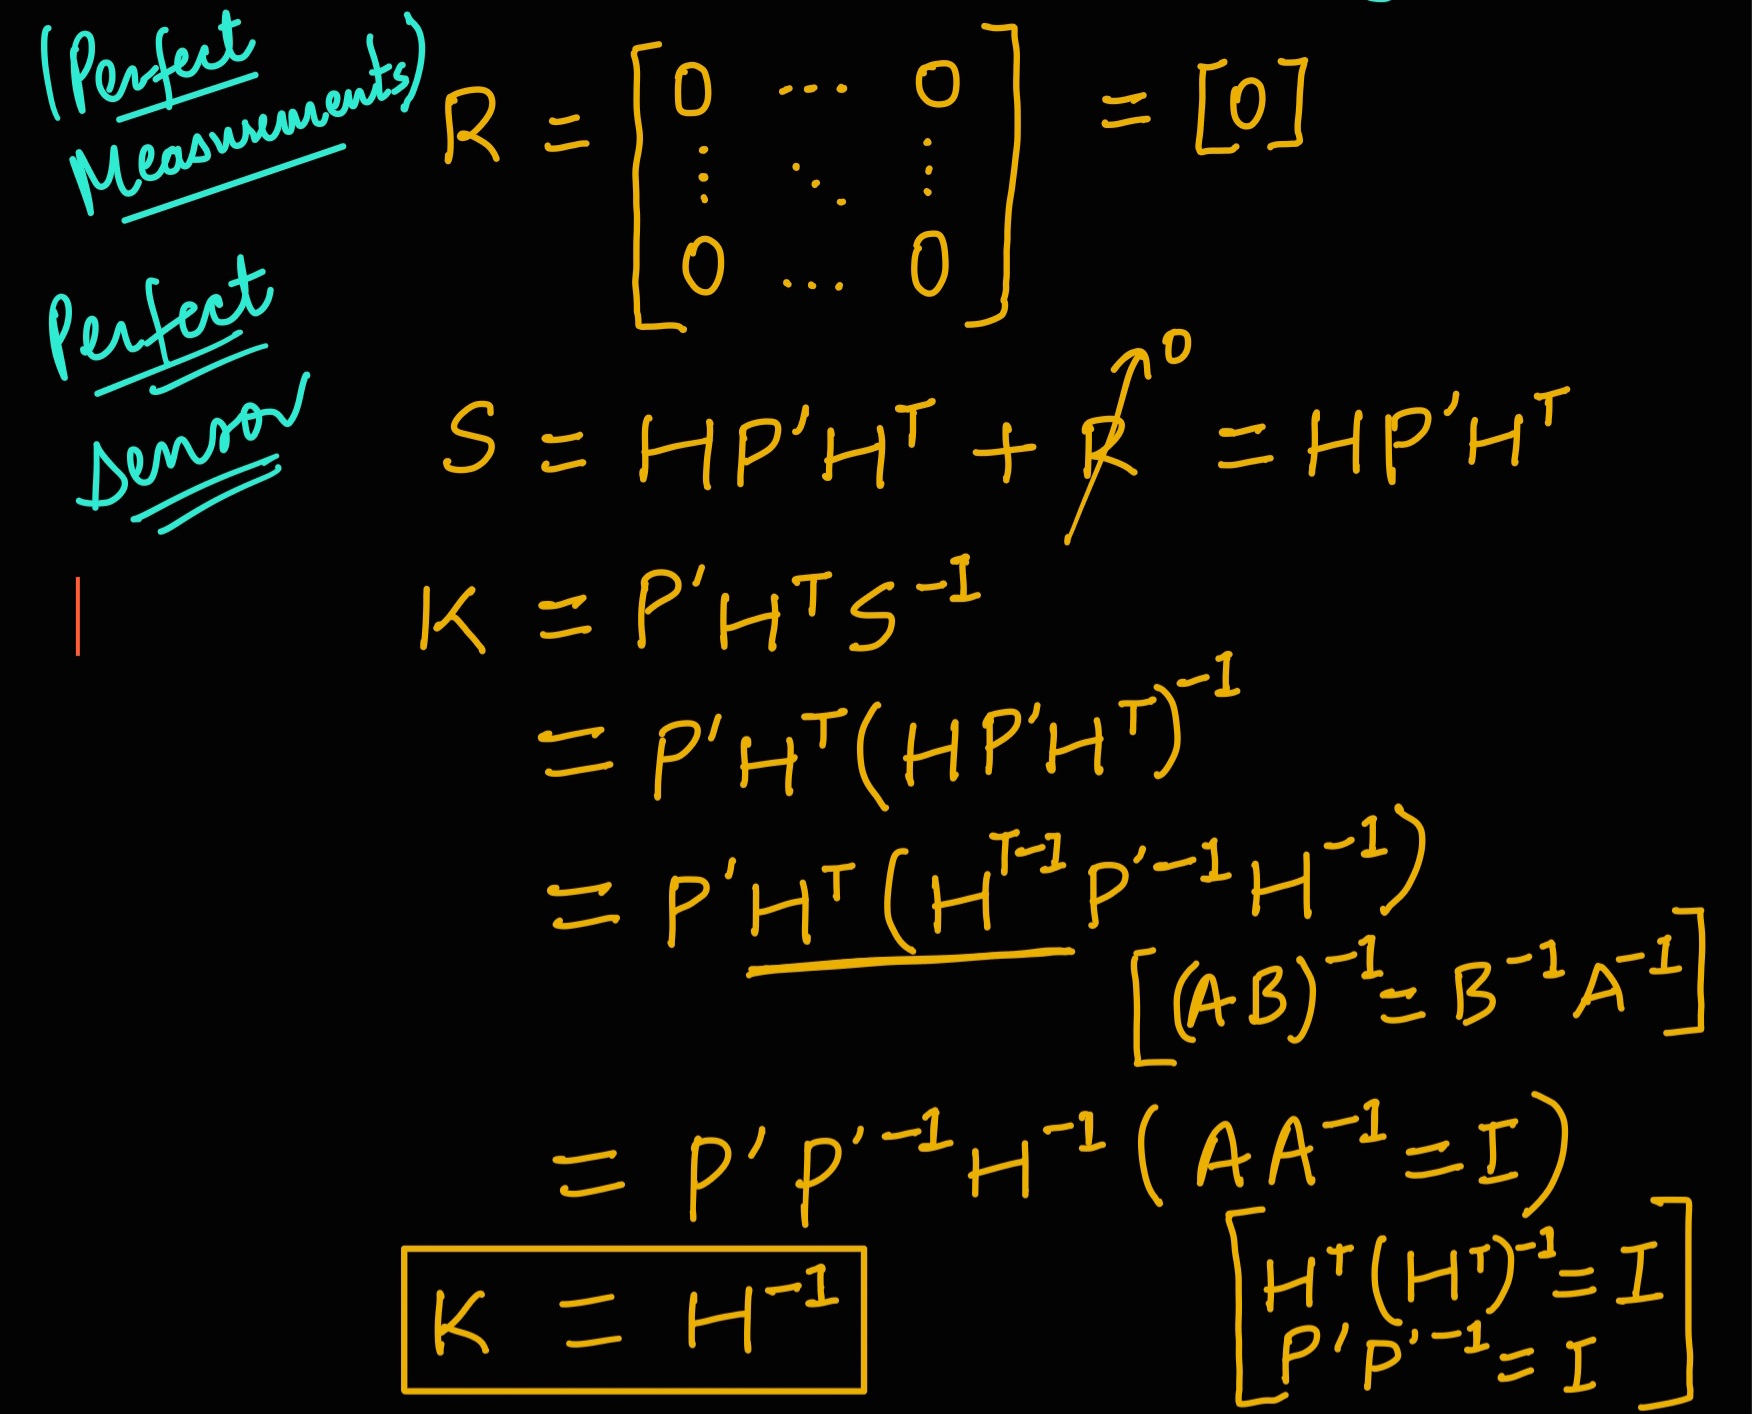 (Perfect
Measurements)
R = [0 ... 0
⋮ ⋱ ⋮
0 ... 0] = [0]
Perfect
Sensor
S = HP'Hᵀ + R↗0 = HP'Hᵀ
K = P'HᵀS⁻¹
= P'Hᵀ(HP'Hᵀ)⁻¹
= P'Hᵀ(Hᵀ⁻¹P'⁻¹H⁻¹)
[(AB)⁻¹ = B⁻¹A⁻¹]
= P'P'⁻¹H⁻¹ (AA⁻¹ = I)
[Hᵀ(Hᵀ)⁻¹ = I
P'P'⁻¹ = I]
K = H⁻¹